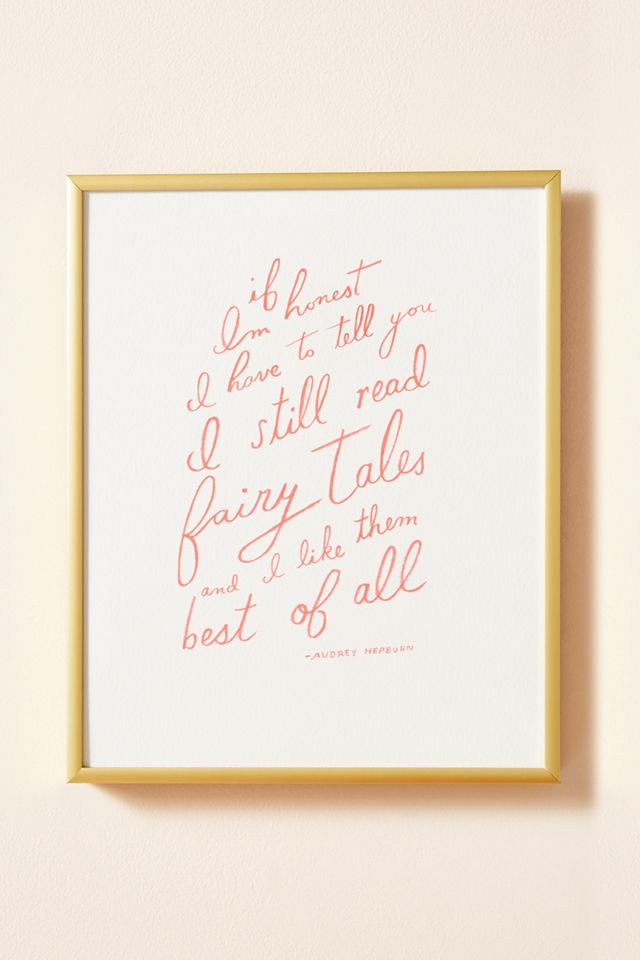 if
I'm honest
I have to tell you
I still read
fairy tales
and I like them
best of all
-AUDREY HEPBURN